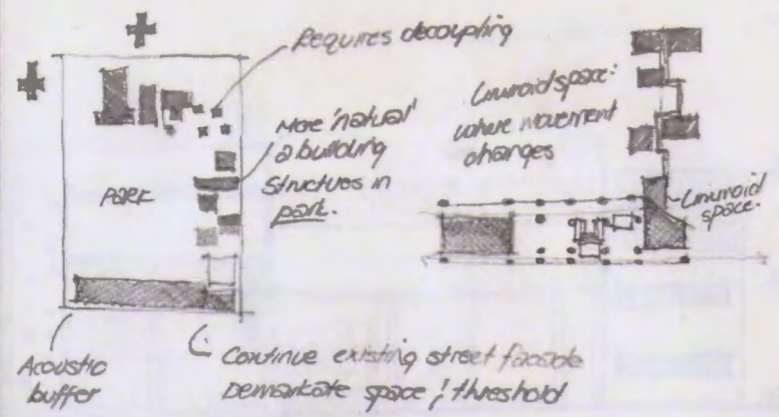 Requires decoupling
More 'natural'
a building
structures in
part.
Park
Acoustic
buffer
Continue existing street facade
Demarkate space / threshold
Liminoid space:
where movement
changes
Liminoid
space.